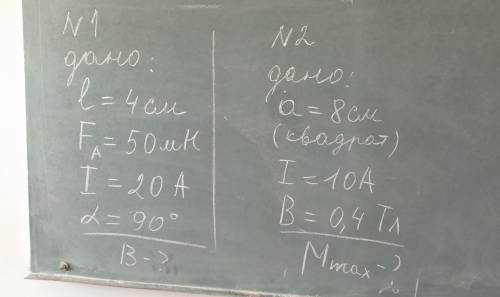 N1
дано:
l = 4 см
F_A = 50 мН
I = 20 А
α = 90°
B - ?
N2
дано:
a = 8 см
(квадрат)
I = 10 А
B = 0,4 Тл
M_max - ?